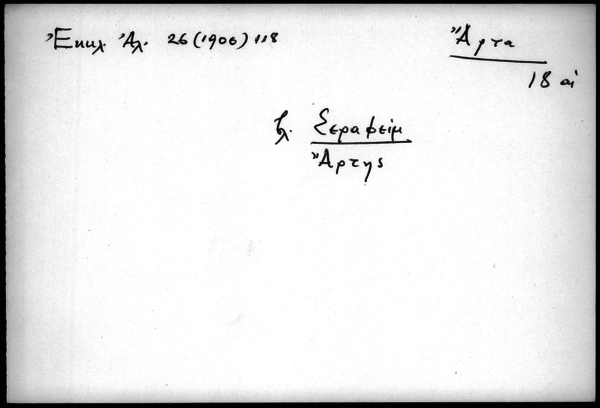 Ἐκκλ. Ἀλ. 26 (1906) 118
Ἄρτα
18 αἰ
βλ. Σεραφείμ
Ἄρτης